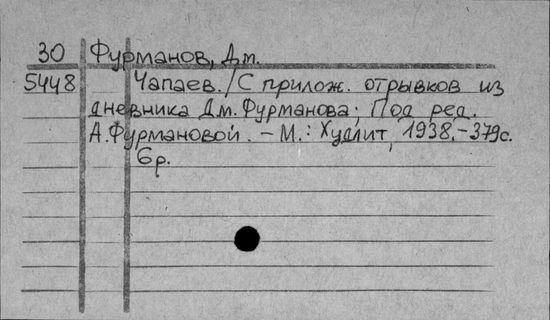 30 Фурманов, Дм.
5448 Чапаев. /С прилож. отрывков из
дневника Дм. Фурманова; Под ред.
А. Фурмановой. - М.: Худлит, 1938. - 379с.
6р.